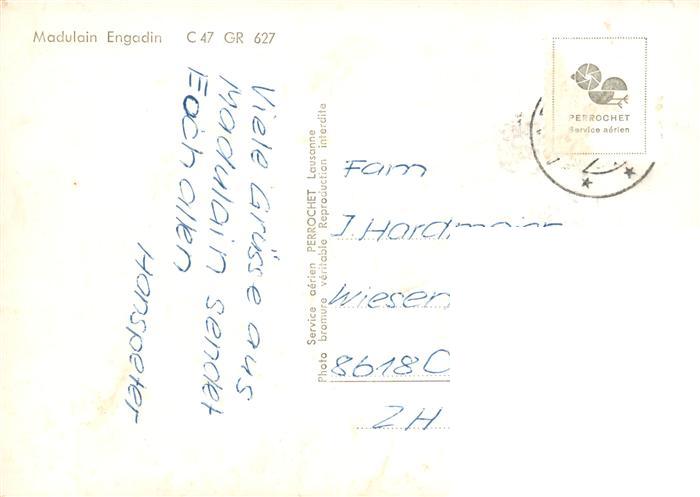 Madulain Engadin C 47 GR 627
Viele Grüsse aus
Madulain sendet
Euch allen
Hanspeter
Service aérien PERROCHET Lausanne
Photo bromure véritable Reproduction interdite
PERROCHET
Service aérien
Fam
J. Hardmeier
Wiesen
8618 
ZH